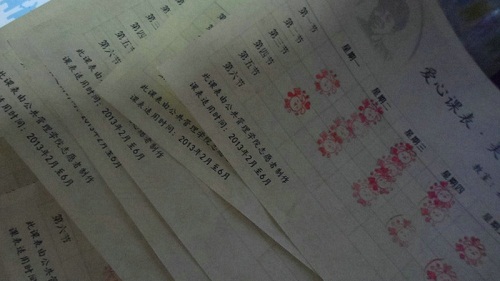 爱心课表
星期一
星期二
星期三
星期四
第一节
第二节
第三节
第四节
第五节
第六节
此课表由公共管理学院志愿者制作
课表适用时间：2013年2月至6月
第五节
第六节
此课表由公共管理学院
课表适用时间：2013年2月至6月
第五节
第六节
此课表由公共管理学院
课表适用时间：
2月至6月
此课表由公共管理学院志愿者制作
课表适用时间：2013年2月至6月
第六节
此课表由公共管理
课表适用时间